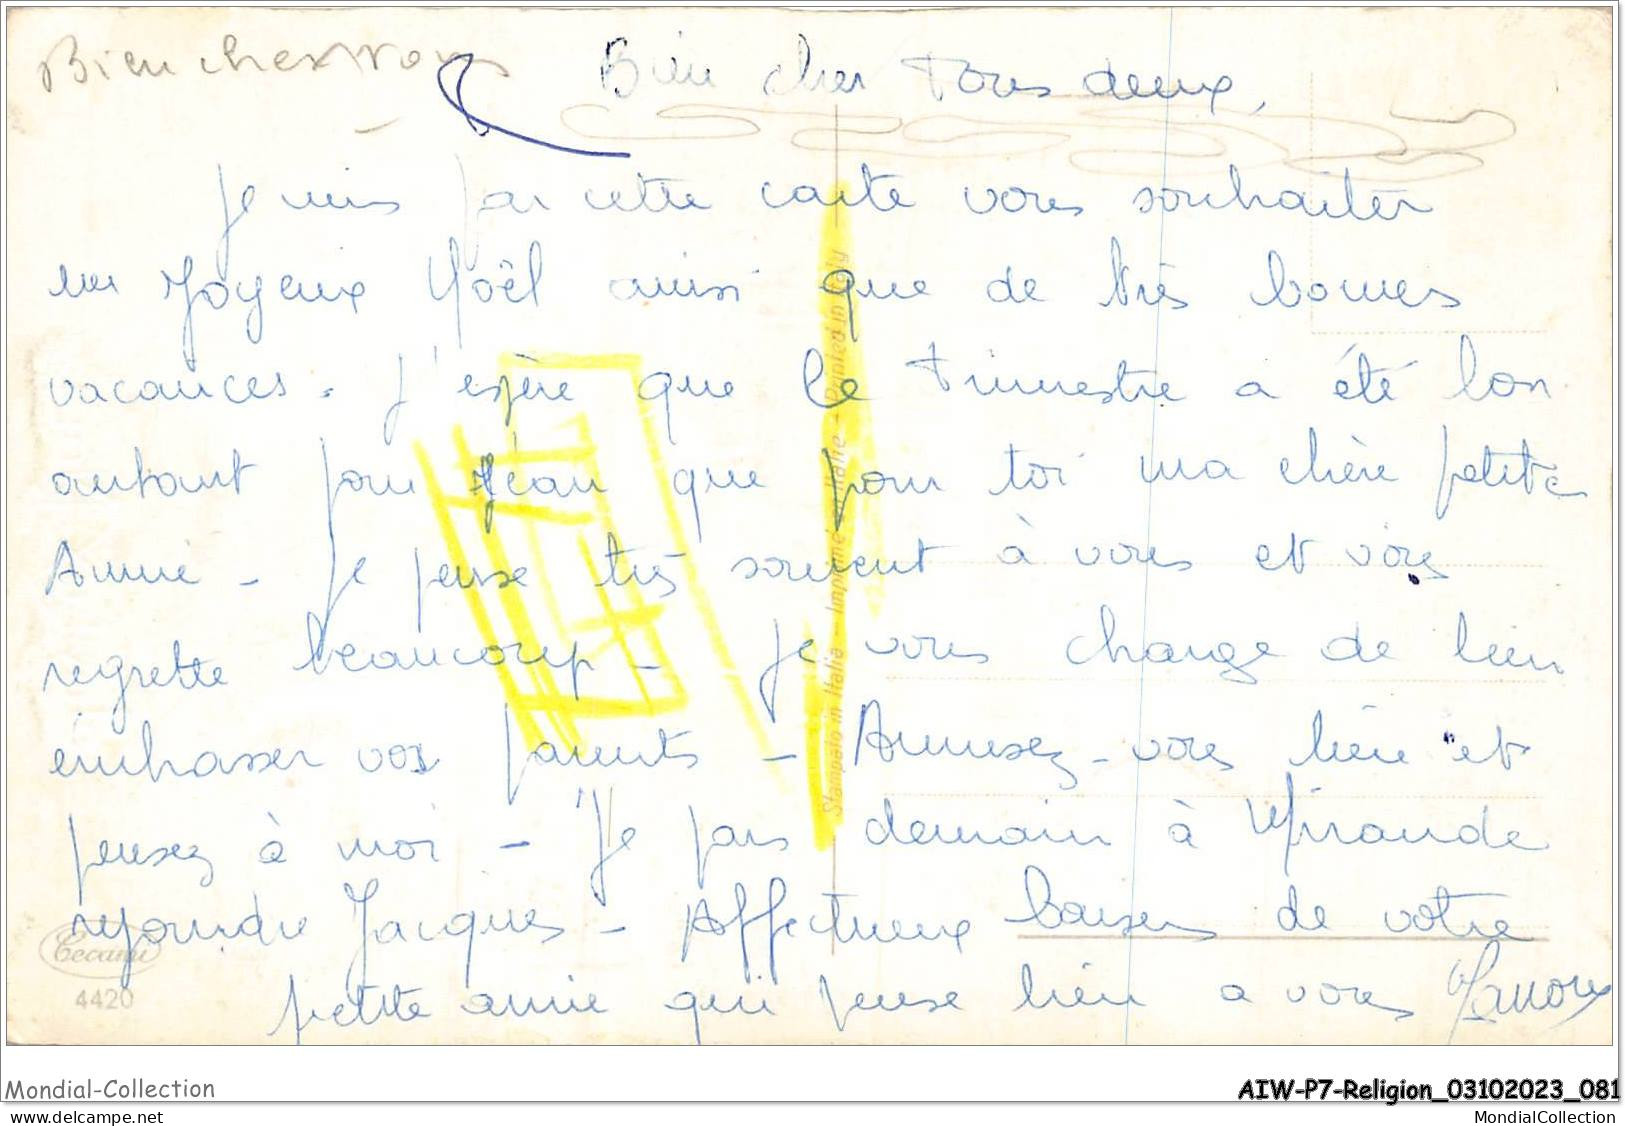 Bien cher vous
Bien cher tous deux,
Je viens par cette carte vous souhaiter
un Joyeux Noël ainsi que de très bonnes
vacances. J'espère que le trimestre a été bon
autant pour Jean que pour toi ma chère petite
Annie - Je pense très souvent à vous et vous
regrette beaucoup - Je vous charge de bien
embrasser vos parents - Amusez-vous bien et
pensez à moi - Je pars demain à Mirande
rejoindre Jacques - Affectueux baisers de votre
petite amie qui pense bien a vous Manou
Stampato in Italia - Imprimé en Italie - Printed in Italy
Cecami
4420
Mondial-Collection
AIW-P7-Religion_03102023_081
www.delcampe.net
MondialCollection